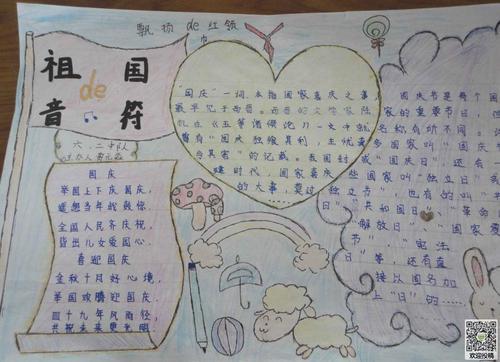 飘扬de红领
巾
祖国
de
音符
六.二中队
国庆
举国上下庆国庆，
遥想当年战鼓惊。
全国人民齐庆祝，
皆出儿女爱国心。
喜迎国庆
金秋十月好心境，
举国欢腾迎国庆。
四十九年风雨径，
共祝未来更光明
"国庆"一词，本指国家喜庆之事
最早见于西晋。西晋的文学家陆
机在《五等诸侯论》一文中就
曾有"国庆独飨其利，主忧莫
与其害"的记载。我国封
建时代，国家喜庆
的大事，莫过
国庆节是每个国
家的重要节日，但
名称有所不同。许
多国家叫"国庆节"
或"国庆日"，还有
些国家叫"独立日"或
独立节"，也有的叫
日"、"共和国日"、"革命
"解放日"、"国家
节"、"宪法
日"等，还有直
接以国名加
上"日"的……
欢迎投稿